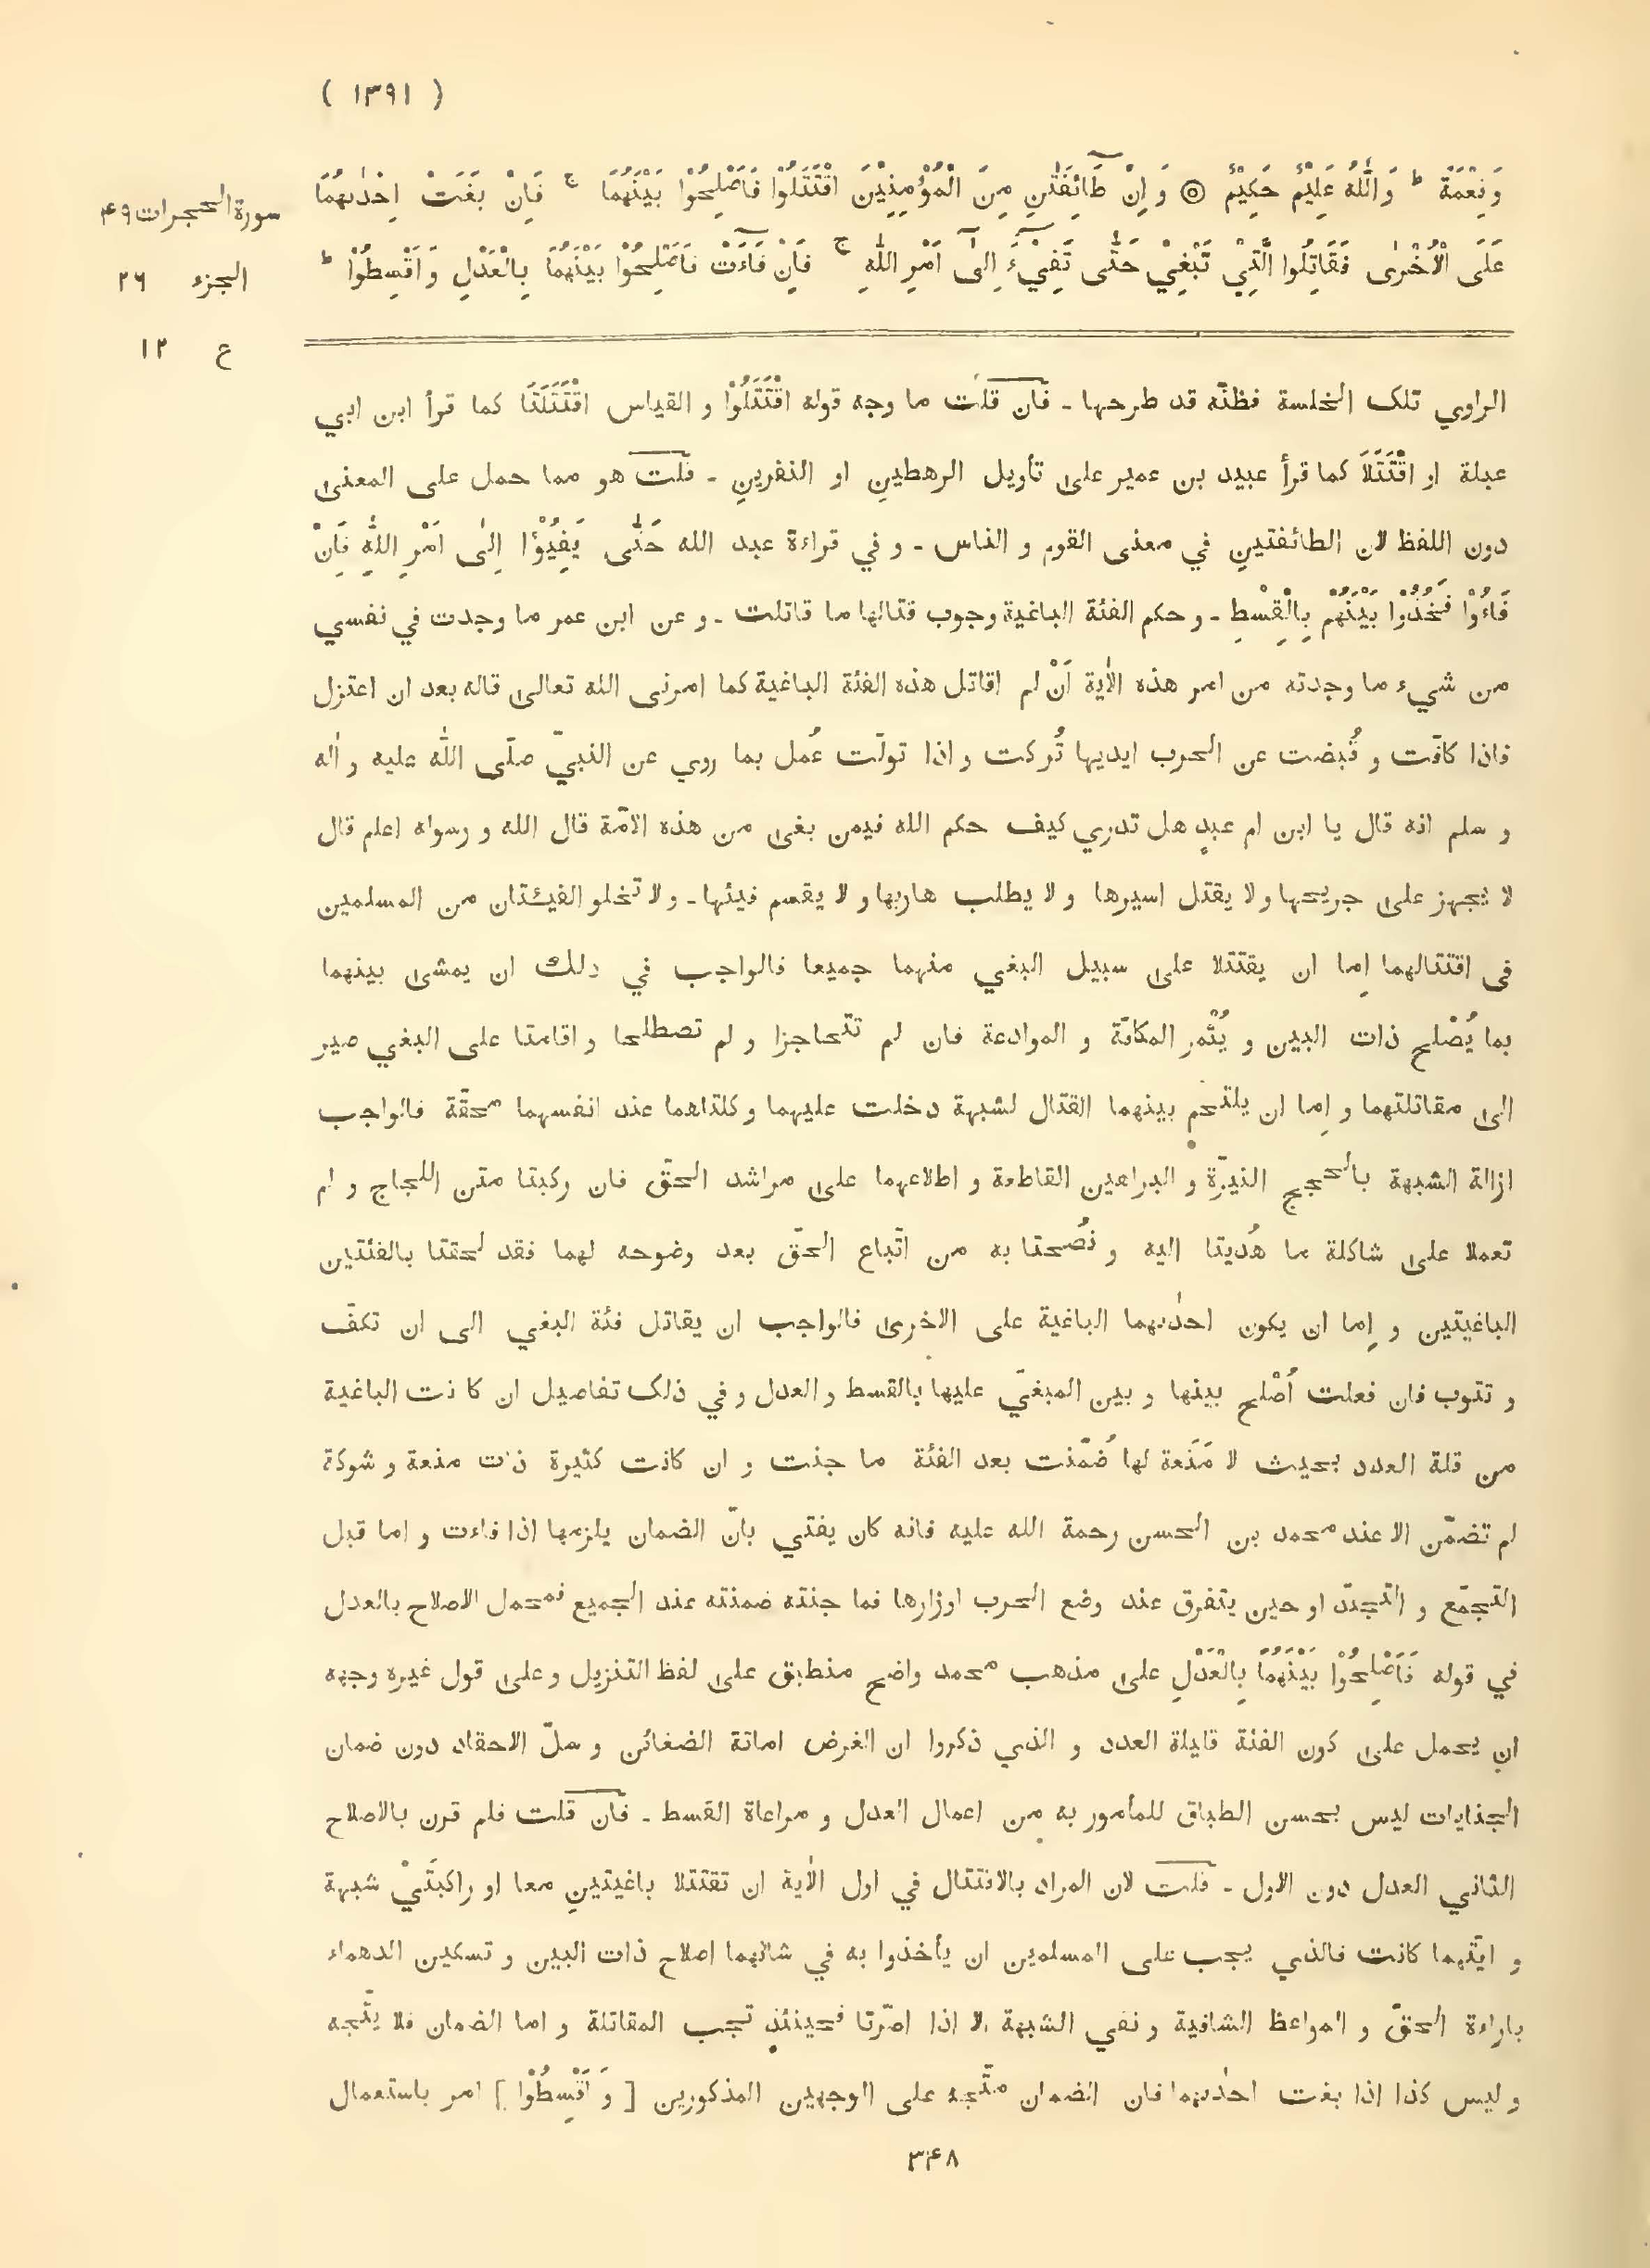 ( ١٣٩١ )
وَنِعْمَةً ط وَاللّٰهُ عَلِيْمٌ حَكِيْمٌ ۞ وَاِنْ طَآئِفَتٰنِ مِنَ الْمُؤْمِنِيْنَ اقْتَتَلُوْا فَاَصْلِحُوْا بَيْنَهُمَا ج فَاِنْ بَغَتْ اِحْدٰىهُمَا
عَلَى الْاُخْرٰى فَقَاتِلُوا الَّتِيْ تَبْغِيْ حَتّٰى تَفِيْٓءَ اِلٰٓى اَمْرِ اللّٰهِ ج فَاِنْ فَآءَتْ فَاَصْلِحُوْا بَيْنَهُمَا بِالْعَدْلِ وَاَقْسِطُوْا ط
سورة الحجرات ۴۹
الجزء ٢٦
ع ١٢
الراوي تلك الخلسة فظنّه قد طرحها ـ فان قلت ما وجه قوله اقْتَتَلُوْا و القياس اقْتَتَلَتَا كما قرأ ابن ابي
عبلة او اقْتَتَلَا كما قرأ عبيد بن عمير على تأويل الرهطينِ او النفرينِ ـ قلت هو مما حمل على المعنى
دون اللفظ لان الطائفتينِ في معنى القوم و الناس ـ و في قراءة عبد الله حَتّٰى يَفِيْؤُا اِلٰى اَمْرِ اللّٰهِ فَاِنْ
فَاءُوْا فَخُذُوْا بَيْنَهُمْ بِالْقِسْطِ ـ و حكم الفئة الباغية وجوب قتالها ما قاتلت ـ و عن ابن عمر ما وجدت في نفسي
من شيء ما وجدته من امر هذه الاٰية اَنْ لم اقاتل هذه الفئة الباغية كما امرنى الله تعالى قاله بعد ان اعتزل
فاذا كافّت و قُبضت عن الحرب ايديها تُركت و اذا تولّت عُمل بما روي عن النبيّ صلّى اللّٰه عليه و اٰله
و سلم انه قال يا ابن ام عبدٍ هل تدري كيف حكم الله فيمن بغى من هذه الامّة قال الله و رسوله اعلم قال
لا يجهز على جريحها و لا يقتل اسيرها و لا يطلب هاربها و لا يقسم فيئها ـ و لا تخلو الفيئتان من المسلمين
فى اقتتالهما اِما ان يقتتلا على سبيل البغي منهما جميعا فالواجب في ذلك ان يمشى بينهما
بما يُصْلح ذات البين و يُثْمر المكافّة و الموادعة فان لم تتحاجزا و لم تصطلحا و اقامتا على البغي صير
الى مقاتلتهما و اِما ان يلتحم بينهما القتال لشبهة دخلت عليهما و كلتاهما عند انفسهما محقّة فالواجب
ازالة الشبهة بالحجج النيّرة و البراهين القاطعة و اطلاعهما على مراشد الحقّ فان ركبتا متن اللجاج و لم
تعملا على شاكلة ما هُديتا اليه و نُصحتا به من اتّباع الحقّ بعد وضوحه لهما فقد لحقتا بالفئتين
الباغيتين و اِما ان يكون احدٰىهما الباغية على الاخرى فالواجب ان يقاتل فئة البغي الى ان تكفّ
و تتوب فان فعلت اُصْلح بينها و بين المبغيّ عليها بالقسط و العدل و في ذلك تفاصيل ان كانت الباغية
من قلة العدد بحيث لا مَنَعة لها ضُمّنت بعد الفئة ما جنت و ان كانت كثيرة ذات منعة و شوكة
لم تضمّن الا عند محمد بن الحسن رحمة الله عليه فانه كان يفتي بانّ الضمان يلزمها اذا فاءت و اما قبل
التجمّع و التجنّد او حين يتفرق عند وضع الحرب اوزارها فما جنته ضمنته عند الجميع فمحمل الاصلاح بالعدل
في قوله فَاَصْلِحُوْا بَيْنَهُمَا بِالْعَدْلِ على مذهب محمد واضح منطبق على لفظ التنزيل و على قول غيره وجهه
ان يحمل على كون الفئة قليلة العدد و الذي ذكروا ان الغرض اماتة الضغائن و سلّ الاحقاد دون ضمان
الجنايات ليس بحسن الطباق للمأمور به من اعمال العدل و مراعاة القسط ـ فان قلت فلم قرن بالاصلاح
الثاني العدل دون الاول ـ قلت لان المراد بالاقتتال في اول الاٰية ان تقتتلا باغيتينِ معا او راكبتَيْ شبهة
و ايّتهما كانت فالذي يجب على المسلمين ان يأخذوا به في شانهما اصلاح ذات البين و تسكين الدهماء
باراءة الحقّ و المواعظ الشافية و نفي الشبهة الا اذا اصرّتا فحينئذٍ تجب المقاتلة و اما الضمان فلا يتّجه
و ليس كذا اذا بغت احدٰىهما فان الضمان متّجه على الوجهين المذكورين [ وَ اَقْسِطُوْا ] امر باستعمال
٣۴٨